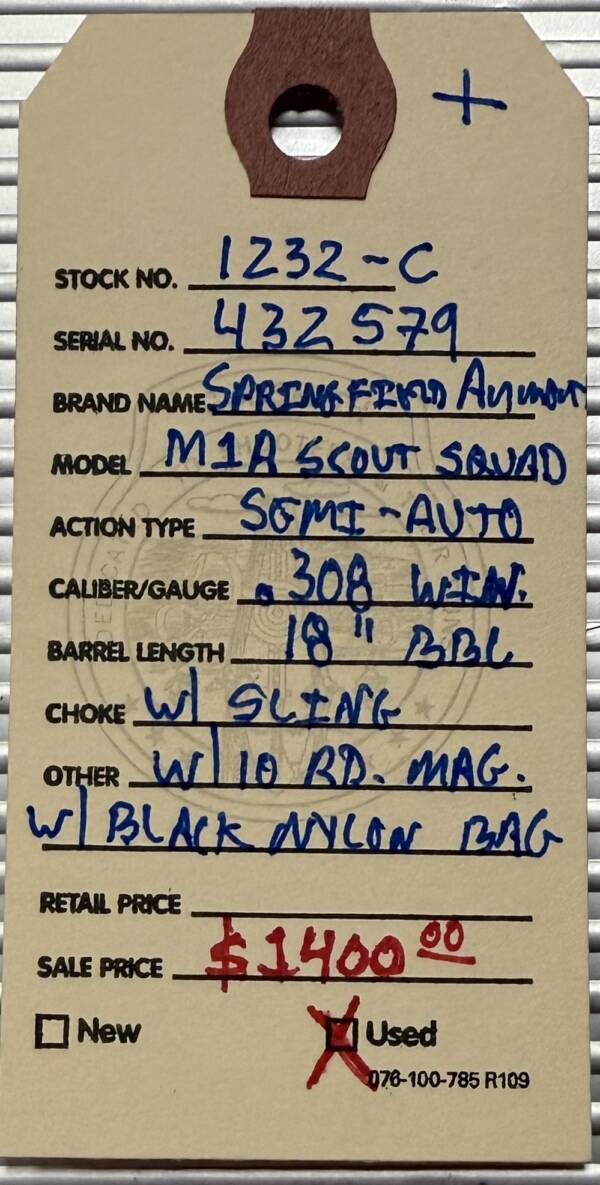 +
STOCK NO. 1232-C
SERIAL NO. 432579
BRAND NAME SPRINGFIELD
MODEL M1A SCOUT SQUAD
ACTION TYPE SEMI-AUTO
CALIBER/GAUGE .308 WIN.
BARREL LENGTH 18" BBL
CHOKE W/ SLING
OTHER W/ 10 RD. MAG.
W/ BLACK NYLON BAG
RETAIL PRICE
SALE PRICE $1400.00
New X Used
076-100-785 R109